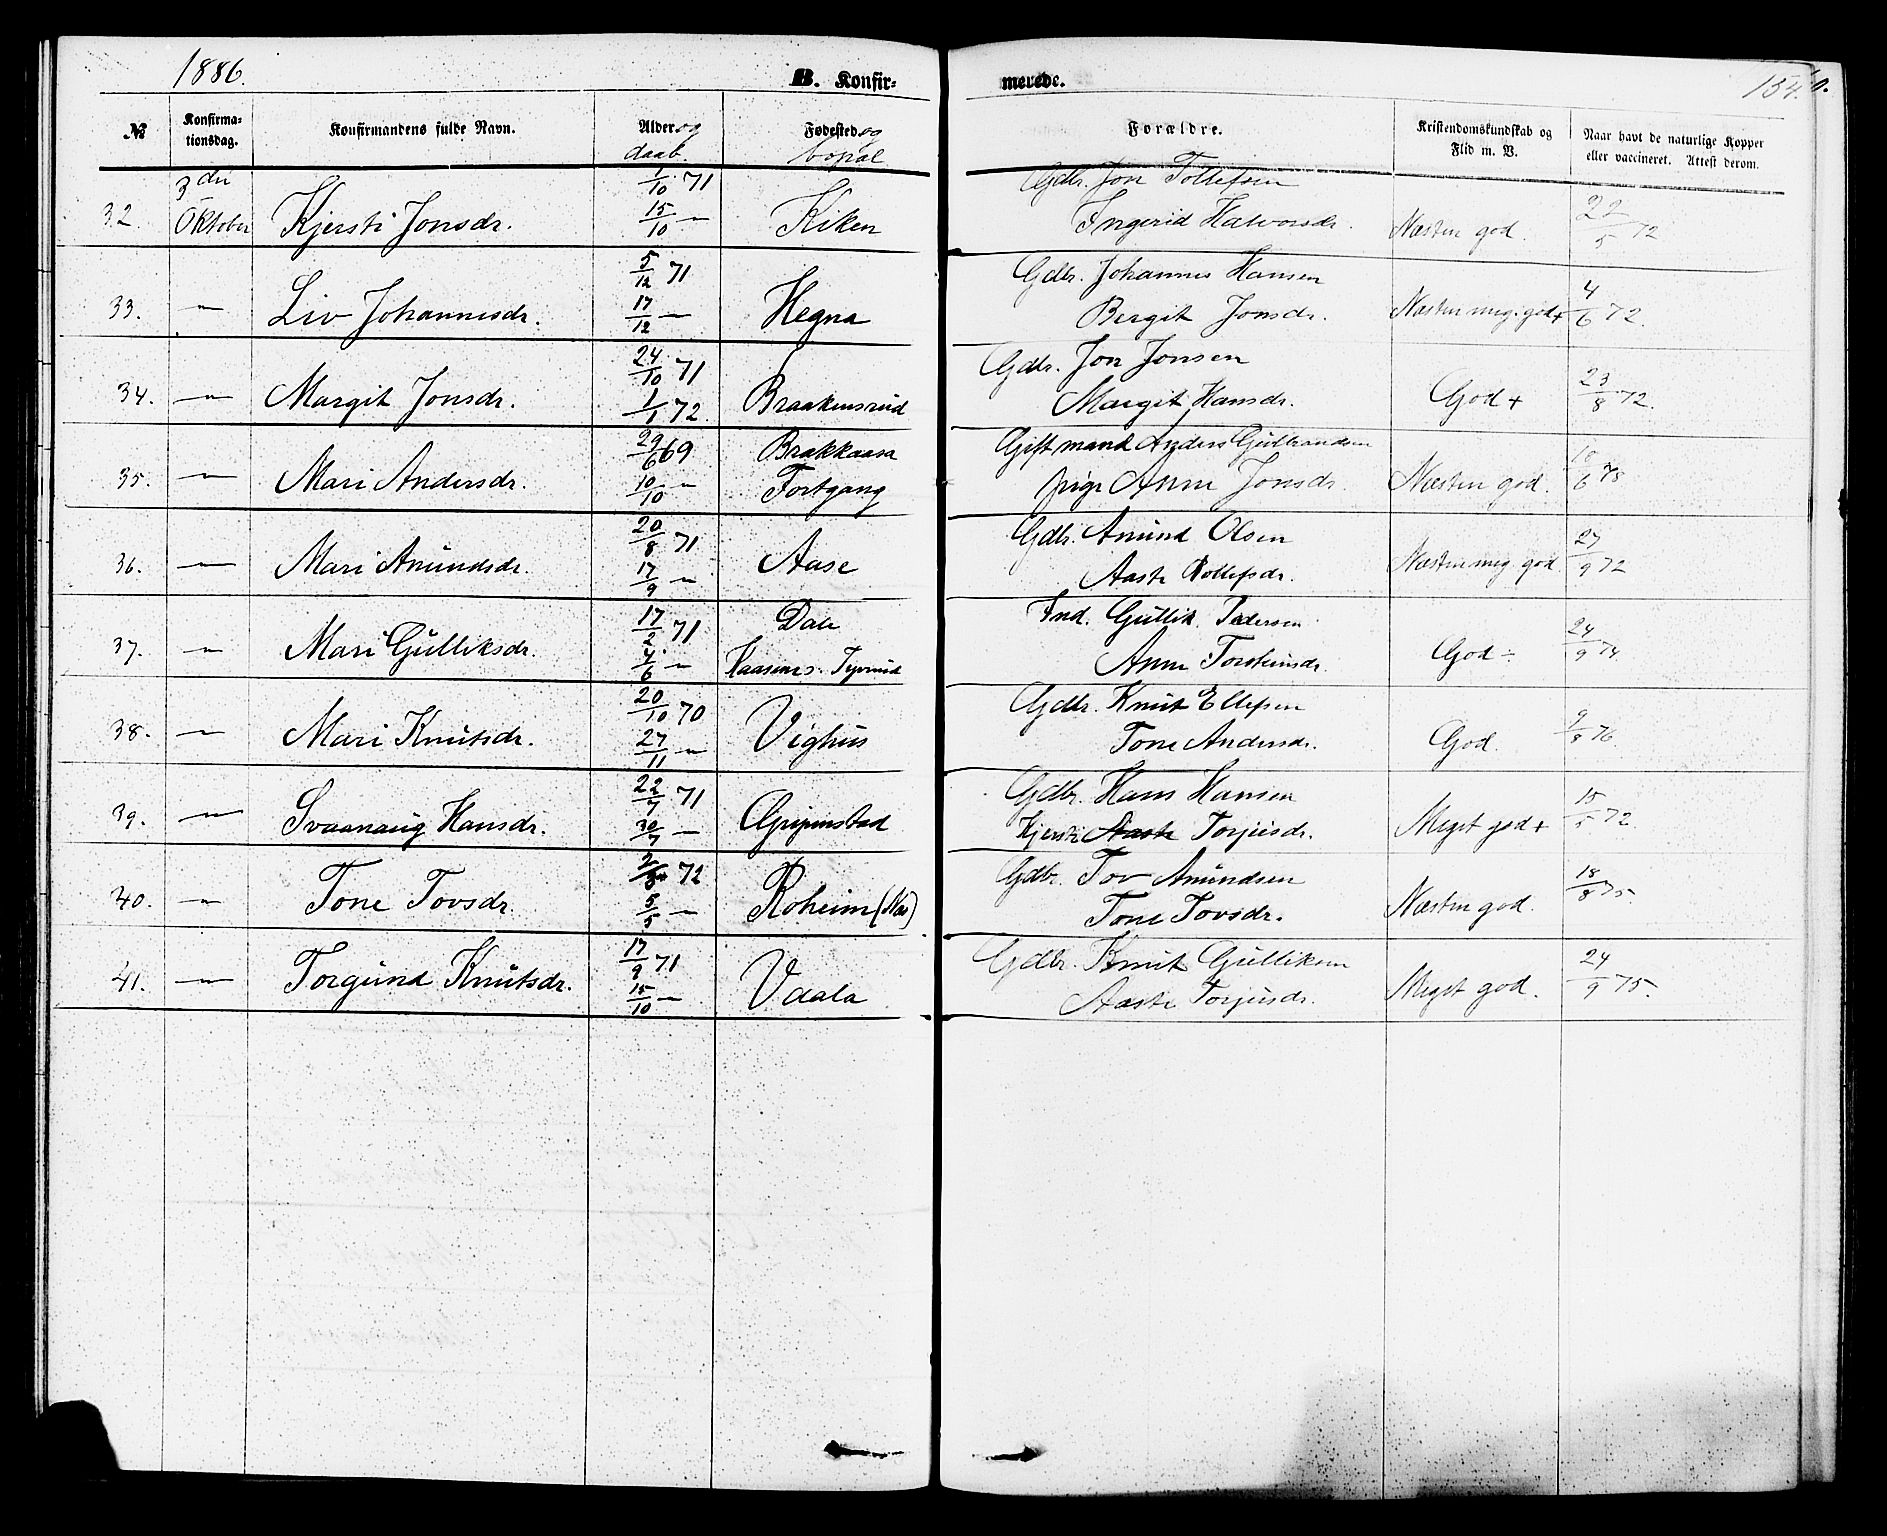 1886.
B. Konfir-
merede.
154.
No
Konfirma-
tionsdag.
Konfirmandens fulde Navn.
Alder og
daab.
Fødested og
bopæl
Forældre.
Kristendomskundskab og
Flid m. V.
Naar havt de naturlige Kopper
eller vaccineret. Attest derom.
32. 3die Oktober Kjersti Jonsdr. 1/10 71 15/10 — Kiken
Gdbr. Jon Tollefsen
Ingerid Halvorsdr. Næsten god. 22/5 72
33. — Liv Johannesdr. 5/12 71 17/12 — Hegna
Gdbr. Johannes Hansen
Bergit Jonsdr. Næsten meg. god + 4/6 72.
34. — Margit Jonsdr. 24/10 71 1/1 72 Braakensrud
Gdbr. Jon Jonsen
Margit Hansdr. God + 23/8 72.
35. — Mari Andersdr. 29/6 69 10/10 — Brakkaasa Fortgang
Gift mand Anders Gulbrandsen
pige Anne Jonsdr Næsten god. 10/6 78
36. — Mari Amundsdr. 20/8 71 17/9 — Aase
Gdbr. Amund Olsen
Aaste Rollefsdr. Næsten meg. god 27/9 72
37. — Mari Gulliksdr. 17/2 71 4/6 — Dale
Ind. Gullik Pedersen
Anne Torsteinsdr. God ÷ 24/9 74
38. — Mari Knutsdr. 20/10 70 27/11 — Vighus
Gdbr. Knut Ellefsen
Tone Andersdr. God. 9/8 76.
39. — Svaanaug Hansdr. 22/7 71 30/7 — Gripenstad
Gdbr. Hans Hansen
Kjersti Aaste Torjusdr. Meget god + 15/5 72.
40. — Tone Tovsdr. 72 5/5 — Roheim (Næs)
Gdbr. Tov Amundsen
Tone Tovsdr. Næsten god. 18/8 75.
41. — Torgund Knutsdr. 17/9 71 15/10 — Vdala
Gdbr. Knut Gulliksen
Aaste Torjusdr. Meget god. 24/9 75.